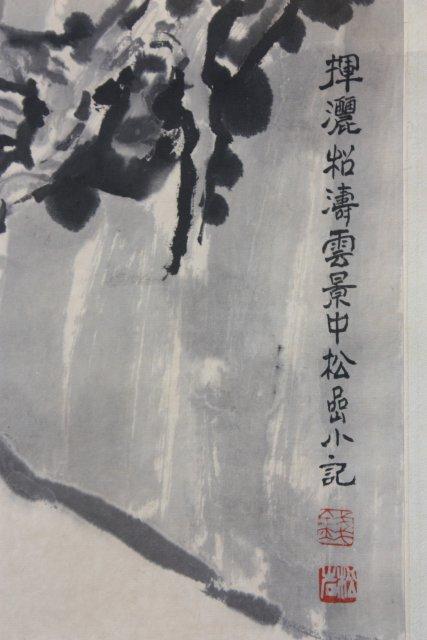 揮灑柗濤雲景中松嵒小記
松岩